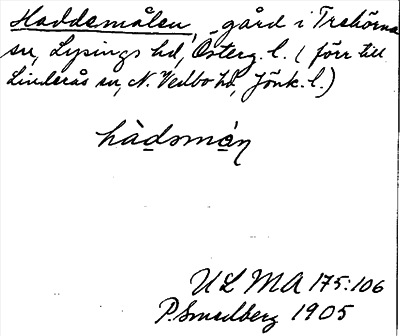 Haddemålen, gård i Trehörna
sn, Lysings hd, Österg. l. (förr till
Linderås sn, N. Vedbo hd, Jönk. l.)
hàdsmán
ULMA 175:106
P. Smedberg 1905